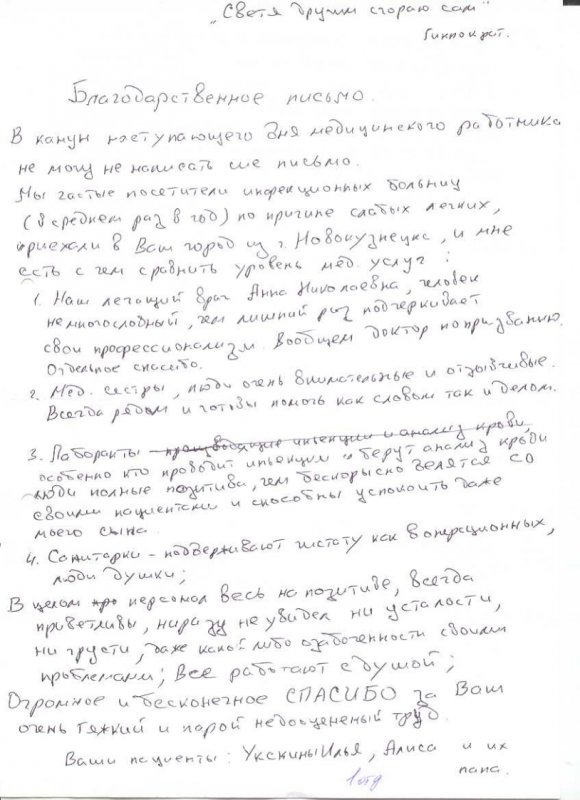 „Светя другим сгораю сам"
Гиппократ.
Благодарственное письмо.
В канун наступающего дня медицинского работника
не могу не написать сие письмо.
Мы частые посетители инфекционных больниц
(в среднем раз в год) по причине слабых легких,
приехали в Ваш город из г. Новокузнецк, и мне
есть с чем сравнить уровень мед. услуг :
1. Наш лечащий врач Анна Николаевна, человек
немногословный, чем лишний раз подчеркивает
свой профессионализм. Вообщем доктор по призванию.
Отдельное спасибо.
2. Мед. сестры, люди очень внимательные и отзывчивые.
Всегда рядом и готовы помочь как словом так и делом.
3. Лаборанты производящие инъекции и анализ крови,
особенно кто проводит инъекции и берут анализ крови
люди полные позитива, чем бескорыстно делятся со
своими пациентами и способны успокоить даже
моего сына.
4. Санитарки - поддерживают чистату как в операционных,
люди душки;
В целом персонал весь на позитиве, всегда
приветливы, ни разу не увидел ни усталости,
ни грусти, даже какой либо озабоченности своими
проблемами; Все работают с душой;
Огромное и бесконечное СПАСИБО за Ваш
очень тяжкий и порой недооцененый труд.
Ваши пациенты: Укскины Илья, Алиса и их
папа.
1 отд